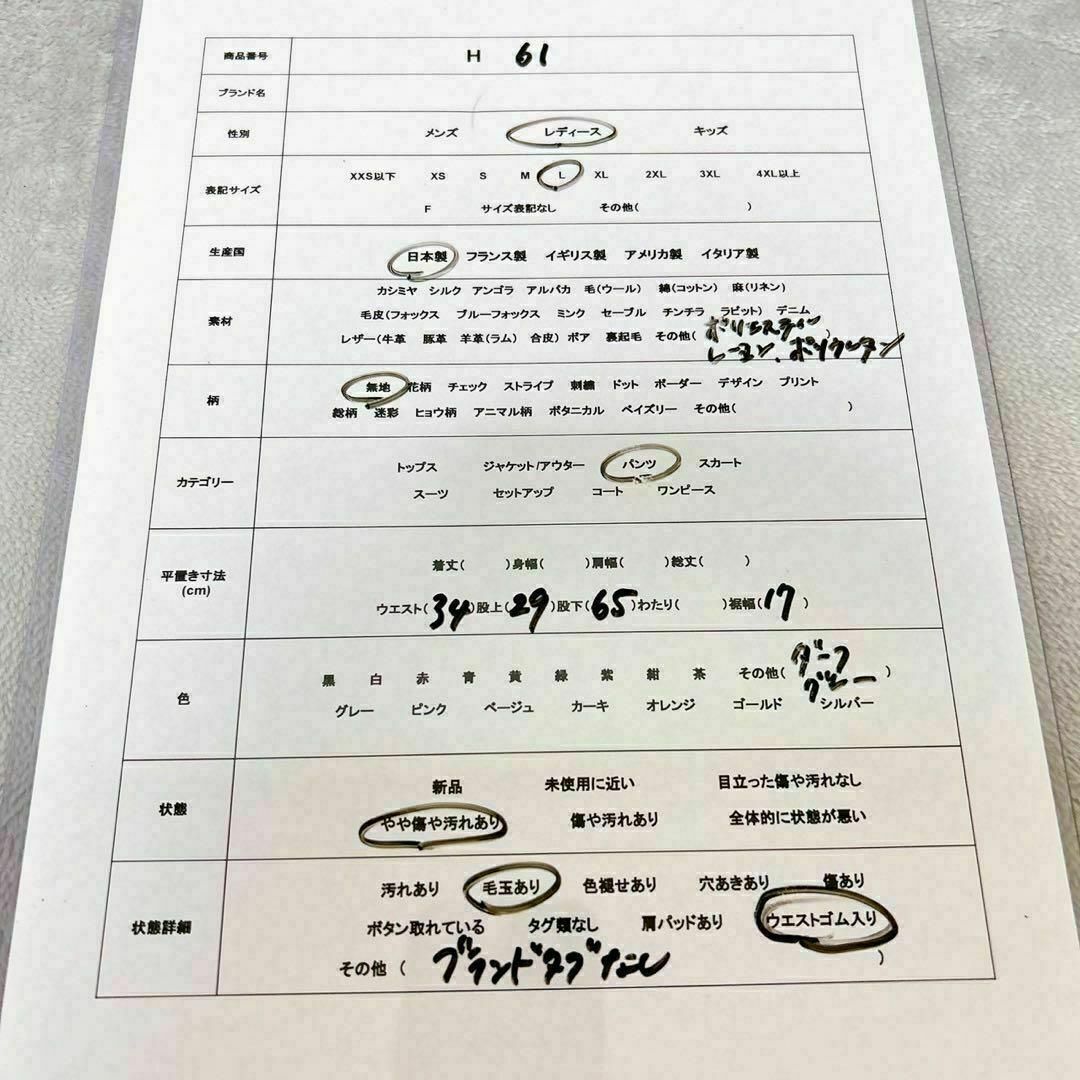 商品番号 H 61
ブランド名
性別 メンズ レディース キッズ
表記サイズ XXS以下 XS S M L XL 2XL 3XL 4XL以上
F サイズ表記なし その他( )
生産国 日本製 フランス製 イギリス製 アメリカ製 イタリア製
素材 カシミヤ シルク アンゴラ アルパカ 毛(ウール) 綿(コットン) 麻(リネン)
毛皮(フォックス ブルーフォックス ミンク セーブル チンチラ ラビット) デニム
レザー(牛革 豚革 羊革(ラム) 合皮) ボア 裏起毛 その他( ポリエステル )
レーヨン、ポリウレタン
柄 無地 花柄 チェック ストライプ 刺繍 ドット ボーダー デザイン プリント
総柄 迷彩 ヒョウ柄 アニマル柄 ボタニカル ペイズリー その他( )
カテゴリー トップス ジャケット/アウター パンツ スカート
スーツ セットアップ コート ワンピース
平置き寸法 (cm) 着丈( )身幅( )肩幅( )総丈( )
ウエスト(34)股上(29)股下(65)わたり( )裾幅(17)
色 黒 白 赤 青 黄 緑 紫 紺 茶 その他( ダーク グレー )
グレー ピンク ベージュ カーキ オレンジ ゴールド シルバー
状態 新品 未使用に近い 目立った傷や汚れなし
やや傷や汚れあり 傷や汚れあり 全体的に状態が悪い
状態詳細 汚れあり 毛玉あり 色褪せあり 穴あきあり 傷あり
ボタン取れている タグ類なし 肩パッドあり ウエストゴム入り
その他 ( ブランドタグなし )